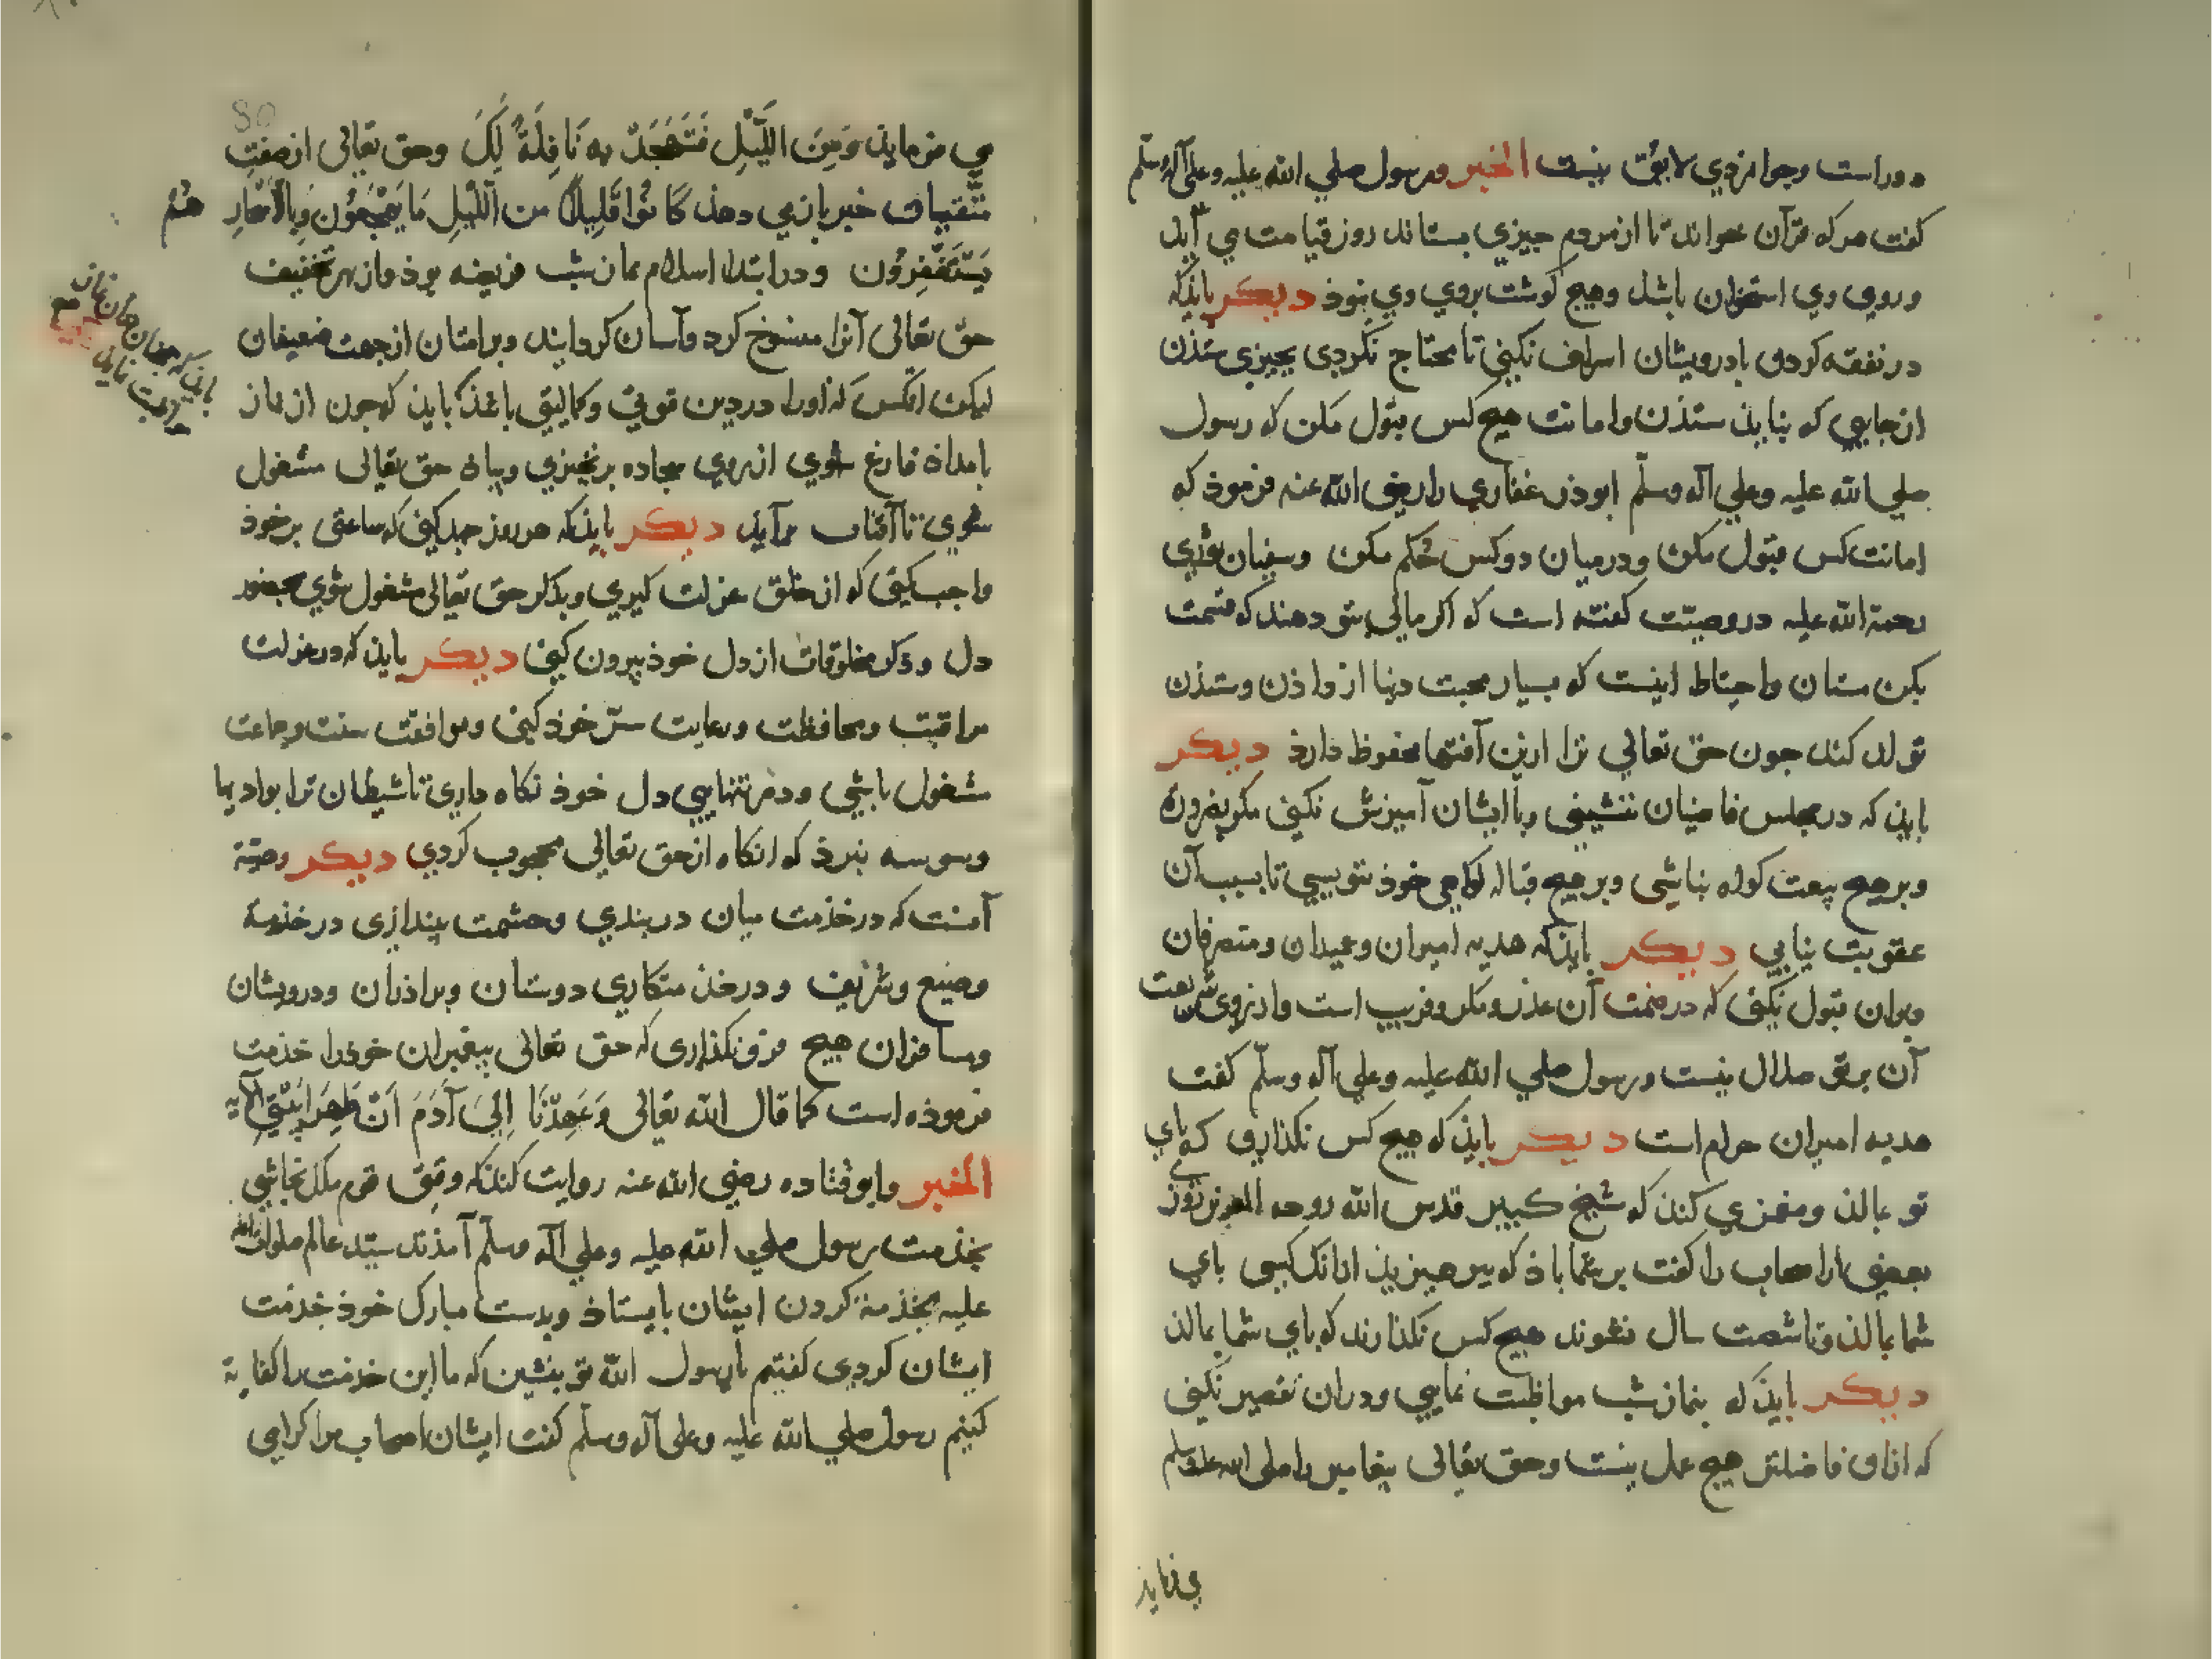 دوراست وجوانمردي لايق نيست الخبر ورسول صلي الله عليه وعلي آله وسلّم
كفت هركه قرآن خواند تا ازمردم جيزي بستاند روز قيامت مي آيد
وروي وي استخوان باشد وهيج كوشت بروي وي نبوذ ديكر بايذكه
درنفقه كردن بادرويشان اسراف نكني تا محتاج نكردي بجيزي ستذن
ازجايي كه نبايذ ستذن وامانت هيج كس قبول مكن كه رسول
صلي الله عليه وعلي آله وسلّم ابوذر غفاري را رضي الله عنه فرموذ كه
امانت كس قبول مكن ودرميان دو كس حكم مكن وسفيان ثوري
رحمة الله عليه دروصيّت كفته است كه اكر مالي بتو دهند كه قسمت
بكن مستان واحتياط اينست كه بسيار محبت دنيا از واذن وستذن
تولد كند جون حق تعالي ترا ازين آفتها محفوظ دارذ ديكر
بايذ كه درمجلس قاضيان ننشيني وبا ايشان آميزش نكني مكر بضرورة
وبرهيج بيعت كواه نباشي وبرهيج قباله كواهي خوذ ننويسي تا بسبب آن
عقوبت نيابي ديكر بايذكه هديه اميران وعميدان ومتصرفان
وبران قبول نكني كه درضمت آن عذر ومكر وفريب است وازروي شريعت
آن برتو حلال نيست ورسول صلي الله عليه وعلي آله وسلّم كفت
هديه اميران حرام است ديكر بايذ كه هيج كس نكذاري كه باي
تو بمالذ ومغمزي كنذ كه شيخ كبير قدس الله روحه العزيز روزي
بعضي از اصحاب را كفت برشما باذ كه بپرهيزيذ ازانك كسي باي
شما بمالذ وتاشصت سال نشوند هيج كس نكذارند كه باي شما بمالذ
ديكر بايذ كه بنمازشب مواظبت نمايي ودران تقصير نكني
كه ازان فاضلتر هيج عمل نيست وحق تعالى پيغامبر را صلى الله عليه وسلم
مي فرمايذ
80
مي فرمايذ وَمِنَ اللَّيْلِ فَتَهَجَّدْ بِهِ نَافِلَةً لَكَ وحق تعالى ازصفت
متّقيان خبر بازمي دهذ كَانُوا قَلِيلًا مِنَ اللَّيْلِ مَا يَهْجَعُونَ وَبِالْأَسْحَارِ هُمْ
يَسْتَغْفِرُونَ ودرابتداء اسلام نمازشب فريضه بوذ وازبهر تخفيف
حق تعالى آنرا منسوخ كرد وآسان كردانيد وبرامتان ازجهت ضعيفان
ليكن انكس كه اورا دردين قوتي وكماليتي باشذ بايذ كه جون از نماز
بامداد فارغ شوي ازروي سجاده برنخيزي وبياد حق تعالى مشغول
شوي تا آفتاب برآيذ ديكر بايذكه هرروز جهد كني كه ساعتى برخوذ
واجب كني كه ازخلق عزلت كيري وبذكر حق تعالى مشغول شوي بحضور
دل وذكر مخلوقات ازدل خوذ بيرون كني ديكر بايذ كه درعزلت
مراقبت ومحافظت ورعايت سرّ خوذ كني وبموافقت سنت وجماعت
مشغول باشي ودرتنهايي دل خوذ نكاه داري تا شيطان ترا بواديها
وسوسه نبرذ كه انكاه ازحق تعالى محجوب كردي ديكر وصيّة
آنست كه درخذمت ميان دربندي وحشمت بيندازى درخذمة
وضيع وشريف ودرخذمتكاري دوستان وبراذران ودرويشان
ومسافران هيج فرق نكذارى كه حق تعالى پيغمبران خوذرا خذمت
فرموذه است كما قال الله تعالى وَعَهِدْنَا إِلَىٰ آدَمَ أَنْ طَهِّرَا بَيْتِيَ الآية
الخبر وابوقتاده رضي الله عنه روايت كنذكه وقتى قوم ملك نجاشي
بخذمت رسول صلي الله عليه وعلي آله وسلّم آمذند سيّد عالم صلوات الله
عليه بخذمة كردن ايشان بايستاذ وبدست مبارك خوذ خذمت
ايشان كردي كفتيم يارسول الله تو بنشين كه ما اين خذمت را كفاية
كنيم رسول صلي الله عليه وعلى آله وسلّم كفت ايشان اصحاب مرا كرامي